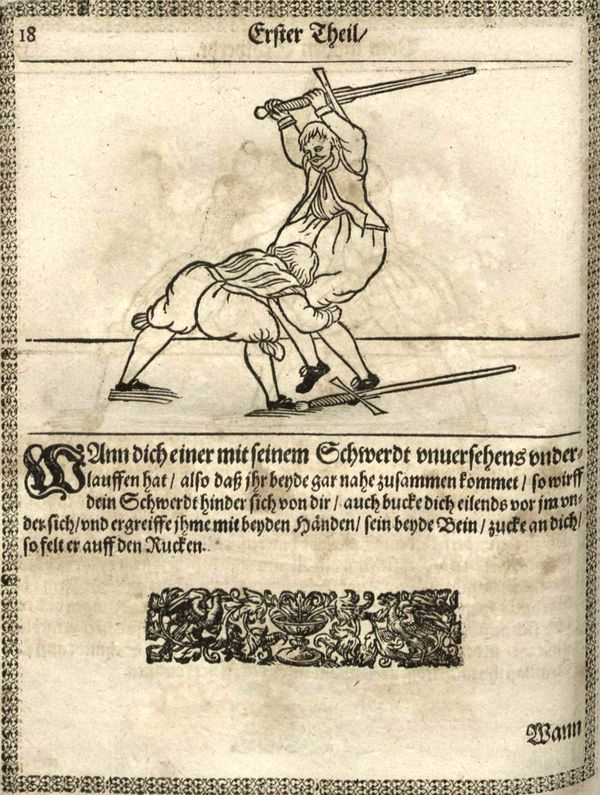 18
Erster Theil/
WAnn dich einer mit seinem Schwerdt vnuersehens vnder-
lauffen hat / also daß jhr beyde gar nahe zusammen kommet / so wirff
dein Schwerdt hinder sich von dir / auch bucke dich eilends vor jm vn-
der sich/vnd ergreiffe jhme mit beyden Händen/ sein beyde Bein / zucke an dich/
so felt er auff den Rucken.
Wann